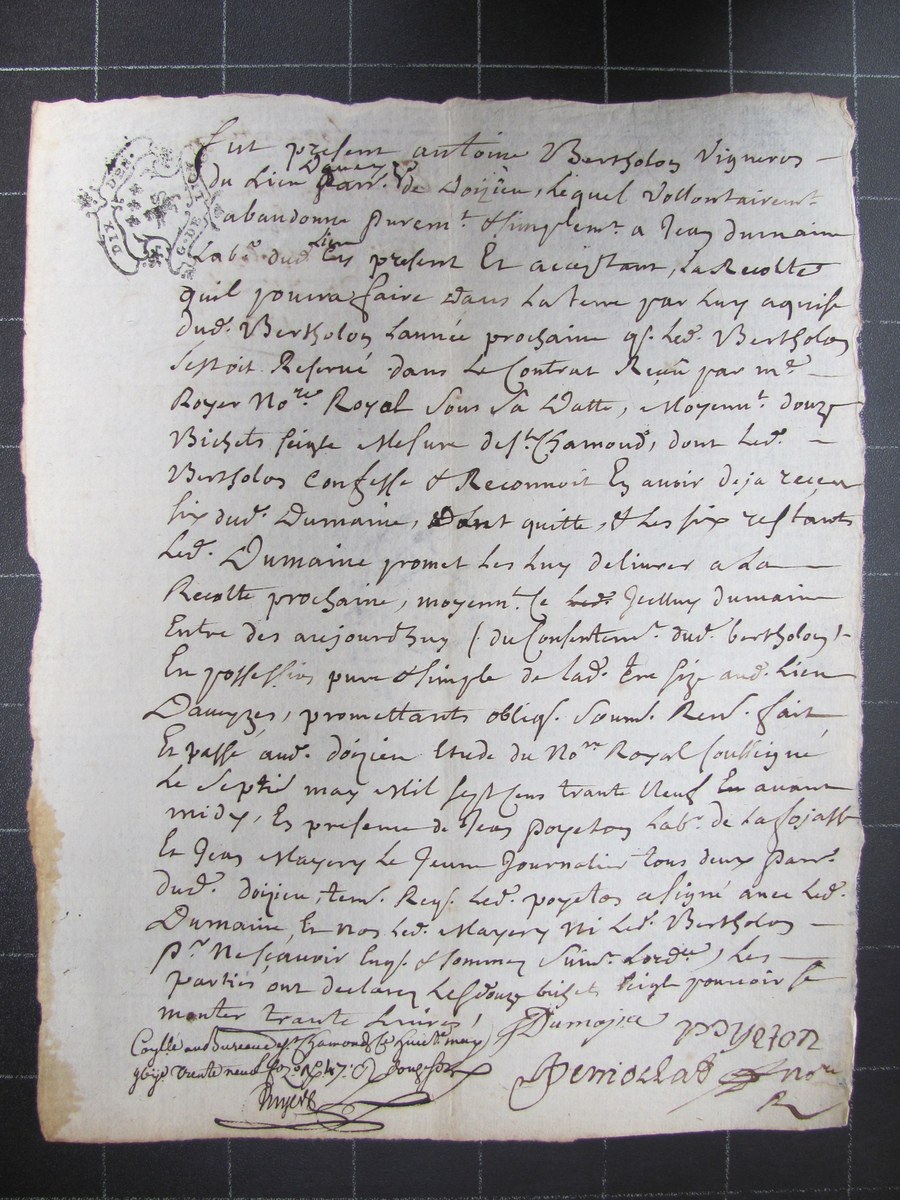 Fut present antoine Bertholon Vigneron
Du Lieu Daveyzes parr. de Doizieu, lequel Vollontairemt.
abandonne puremt. & simplemt. a Jean dumaine
Labr. dud. Lieu present Et aceptant, La Recolte
quil pourra faire dans La terre par Luy aquise
dud. Bertholon Lannée prochaine q. Led. Bertholon
sestoit Reservé dans Le Contrat Reçeu par me.
Royer Nore. Royal sous sa Datte, Moyent. douze
Bichets seigle Mesure de St. Chamond, dont Led.
Bertholon Confesse & Reconnoit En avoir deja reçeu
six dud. Dumaine, dont quitte, & Les six restants
Led. Dumaine promet Les Luy delivrer a La
Recolte prochaine, moyent. Ce Jcelluy dumaine
Entre des aujourdhuy /. du Consentemt. dud. bertholon /.
En possession pure & simple de lad. tre size aud. Lieu
Daveyzes, promettants obligs. Soums. Rens. fait
Et passé aud. doizieu Etude du Nore Royal soussigné
Le septie may Mil sept Cens trante Neuf En avant
midy, En presence de Jean poyeton Labr. de La
Et Jean Mayery Le Jeune Journalier tous deux parr.
dud. doizieu, tems. Reqs. Led. poyeton a signé avec Led.
Dumaine, Et non Led. Mayery Ni Led. Bertholon
pr. Ne sçavoir Enqs. & sommez suivt. Lordce, Les
parties ont declarez Lesd douze bichets seigle pouvoir se
monter trante Livres /
Dumaine
poyeton
nore
Conlle au Bureau de St Chamond le huite may
trente neuf fo 20 No 47. douze s.
DIX DE.
G. DE